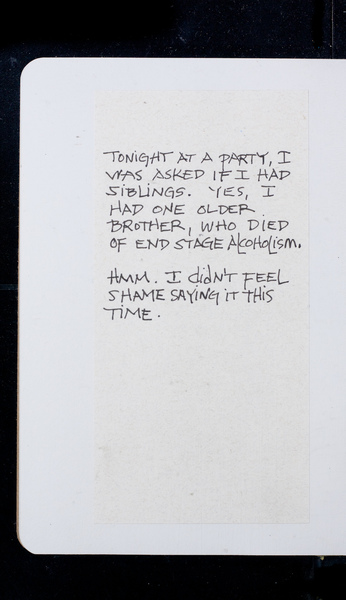 TONIGHT AT A PARTY, I
WAS ASKED IF I HAD
SIBLINGS. YES, I
HAD ONE OLDER
BROTHER, WHO DIED
OF END STAGE ALCOHOLISM.
HMM. I didN'T FEEL
SHAME SAYING IT THIS
TIME.